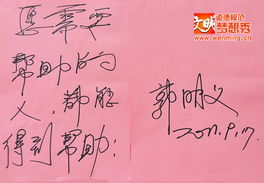 愿需要
帮助的
人，都能
得到帮助！
郭明义
2011.9.17.
文明
道德模范
梦想秀
www.wenming.cn